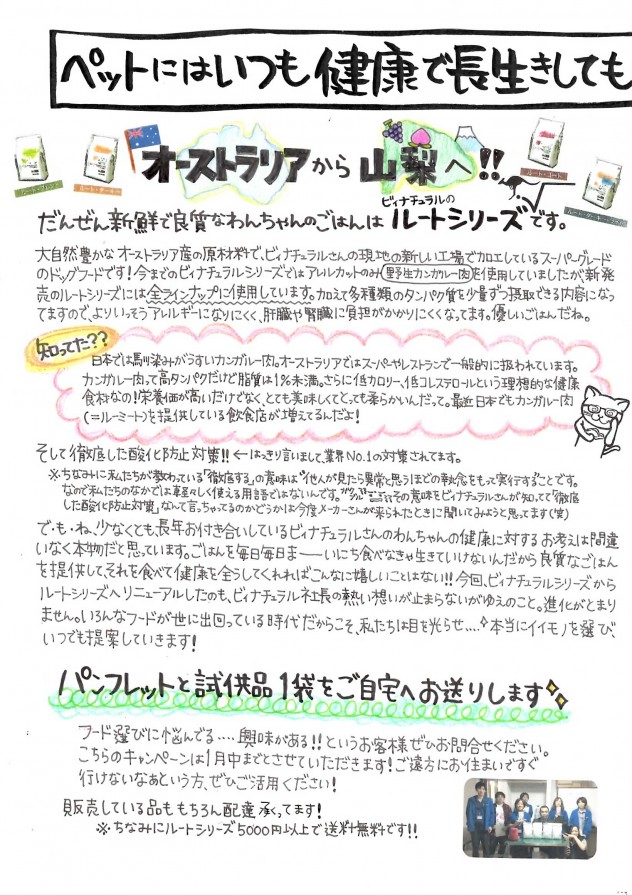 ペットにはいつも健康で長生きしても
オーストラリアから山梨へ!!
ルート・ターキー
ルート・ゴート
ビィナチュラルの
だんぜん新鮮で良質なわんちゃんのごはんはルートシリーズです。
大自然豊かなオーストラリア産の原材料で、ビィナチュラルさんの現地の新しい工場で加工しているスーパーグレード
のドッグフードです!今までのビィナチュラルシリーズではアレルカットのみ野生カンガルー肉を使用していましたが、新発
売のルートシリーズには全ラインナップに使用しています。加えて多種類のタンパク質を少量ずつ摂取できる内容になっ
てますので、よりいっそうアレルギーになりにくく、肝臓や腎臓に負担がかかりにくくなってます。優しいごはんだね。
知ってた??
日本では馴染みがうすいカンガルー肉。オーストラリアではスーパーやレストランで一般的に扱われています。
カンガルー肉って高タンパクだけど脂質は1%未満。さらに低カロリー、低コレステロールという理想的な健康
食材なの!栄養価が高いだけでなく、とても美味しくてとっても柔らかいんだって。最近日本でもカンガルー肉
(=ルーミート)を提供している飲食店が増えてるんだよ!
そして徹底した酸化防止対策!!←はっきり言いまして、業界No.1の対策されてます。
※ちなみに私たちが教わっている「徹底する」の意味は“他人が見たら異常と思うほどの執念をもって実行する”ことです。
なので私たちのなかでは軽々しく使える用語ではないんです。その意味をビィナチュラルさんが知ってて「徹底
した酸化防止対策」なんて言っちゃてるのかどうかは今度メーカーさんが来られたときに聞いてみようと思ってます(笑)
で・も・ね、少なくとも、長年お付き合いしているビィナチュラルさんのわんちゃんの健康に対するお考えは間違
いなく本物だと思っています。ごはんを毎日毎日まーーいにち食べなきゃ生きていけないんだから良質なごはん
を提供して、それを食べて健康を全うしてくれればこんなに嬉しいことはない!!今回、ビィナチュラルシリーズから
ルートシリーズへリニューアルしたのも、ビィナチュラル社長の熱い想いが止まらないがゆえのこと。進化がとまり
ません。いろんなフードが世に出回っている時代だからこそ、私たちは目を光らせ....本当にイイモノを選び、
いつでも提案していきます!
パンフレットと試供品1袋をご自宅へお送りします
フード選びに悩んでる....興味がある!!というお客様ぜひお問合せください。
こちらのキャンペーンは1月中までとさせていただきます!ご遠方にお住まいですぐ
行けないなぁという方、ぜひご活用ください!
販売している品ももちろん配達承ってます!
※ちなみにルートシリーズ5000円以上で送料無料です!!